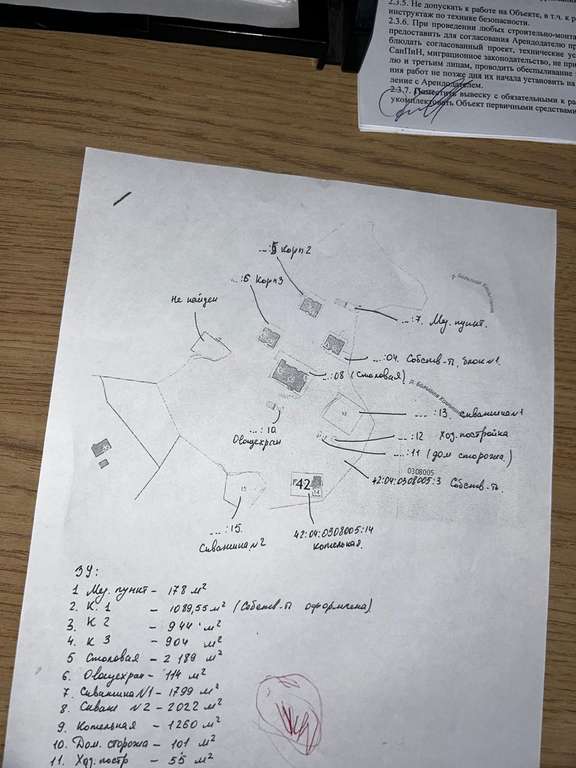 2.3.5. Не допустить к работе на Объекте, в т.ч. к р
инструктаж по технике безопасности.
2.3.6. При проведении любых строительно-монта
предоставить для согласования Арендодателю пр
блюдать согласованный проект, технические ус
СанПиН, миграционное законодательство, не при
лю и третьим лицам, проводить обеспыливание
ния работ не позже дня их начала установить на
ление с Арендодателем.
2.3.7. Поместить вывеску с обязательными к ра
укомплектовать Объект первичными средствами
...:5 Корп 2
...:6 Корп 3
Не найден
р. Большая
...:7. Мед. пункт.
...:04. Собств-ть, блок №1.
...:08 (Столовая)
р. Большая
...:13. скважина №1
...:10.
Овощехран
...:12 Хоз. постройка
...:11 (дом сторожа)
0308005
42:04:0308005:3 Собств-ть.
13
15
42
14
...:15.
Скважина №2
42:04:0308005:14
Котельная.
ЗУ:
1 Мед. пункт – 178 м²
2. К 1 – 1089,55 м² (Собств-ть оформлена)
3. К 2 – 944 м²
4. К 3 – 904 м²
5 Столовая – 2 189 м²
6. Овощехран – 114 м²
7. Скважина №1 – 1799 м²
8. Скваж №2 – 2022 м²
9. Котельная – 1260 м²
10. Дом. сторожа – 101 м²
11. Хоз. постр – 55 м²